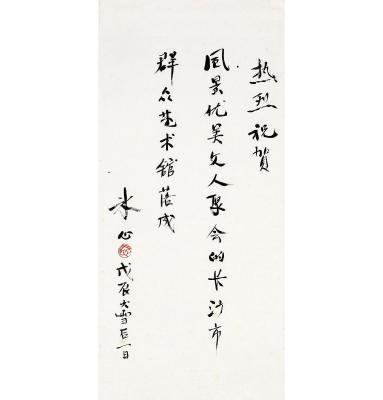 热烈祝贺
风景优美文人聚会的长沙市
群众艺术馆落成
冰心
戊辰大雪后一日